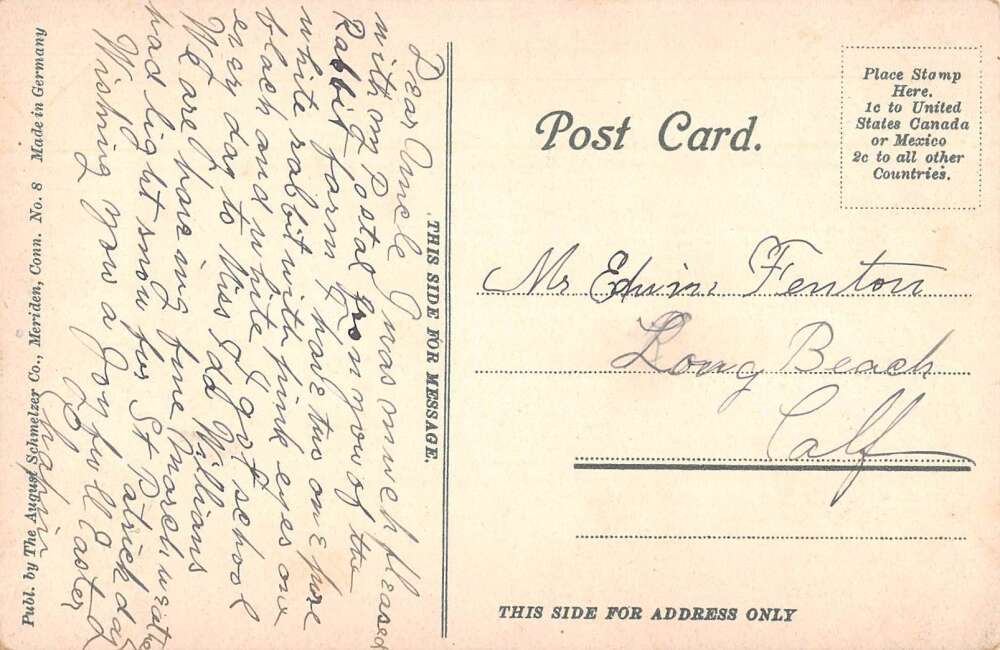 Dear Uncle I was much pleased
with my postal from you of the
Rabbit farm I have two one pure
white rabbit with pink eyes one
black and white I got school
every day to Miss Ida Willians
We are haveing fine March weathe
had light snow for St Patrick day
Wishing you a Joyfull Easter
THIS SIDE FOR MESSAGE.
Publ. by The August Schmelzer Co., Meriden, Conn. No. 8 Made in Germany
Post Card.
Place Stamp
Here.
1c to United
States Canada
or Mexico
2c to all other
Countries.
Mr Edwin Fenton
Long Beach
Calf
THIS SIDE FOR ADDRESS ONLY